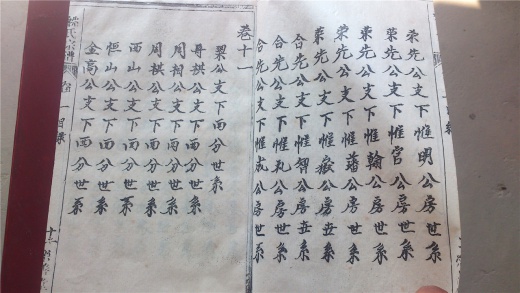 荣先公支下惟明公房世系
荣先公支下惟官公房世系
荣先公支下惟翰公房世系
荣先公支下惟藩公房世系
荣先公支下惟嶽公房世系
合先公支下惟智公房世系
合先公支下惟礼公房世系
合先公支下惟成公房世系
卷十一
梁公支下而分世系
毋棋公支下而分世系
周相公支下而分世系
周棋公支下而分世系
西山公支下而分世系
恒山公支下而分世系
金高公支下而分世系